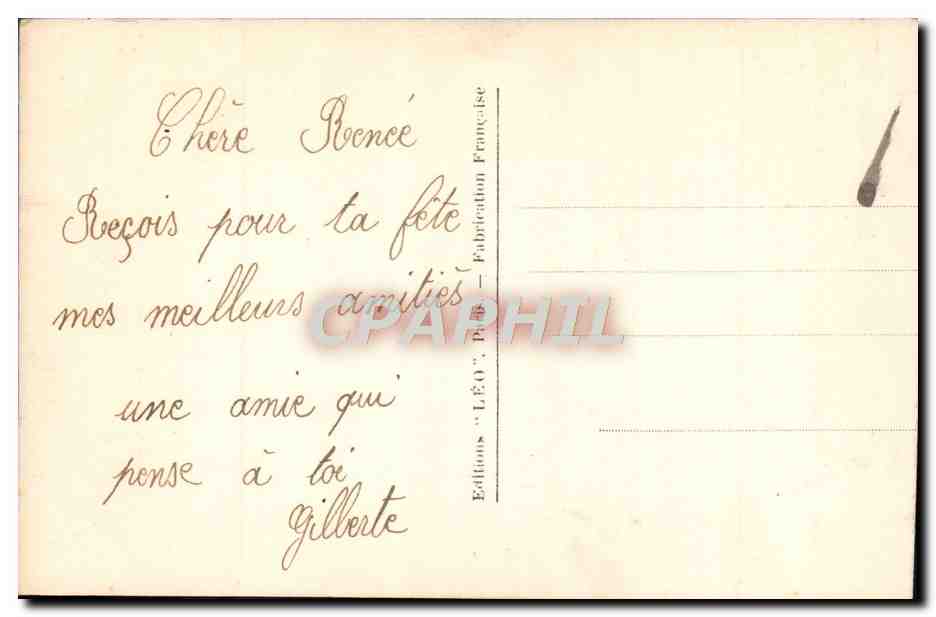 Chère Renée
Reçois pour ta fête
mes meilleurs amitiés
une amie qui
pense à toi
Gilberte
Editions "LÉO", Paris — Fabrication Française
CPAPHIL